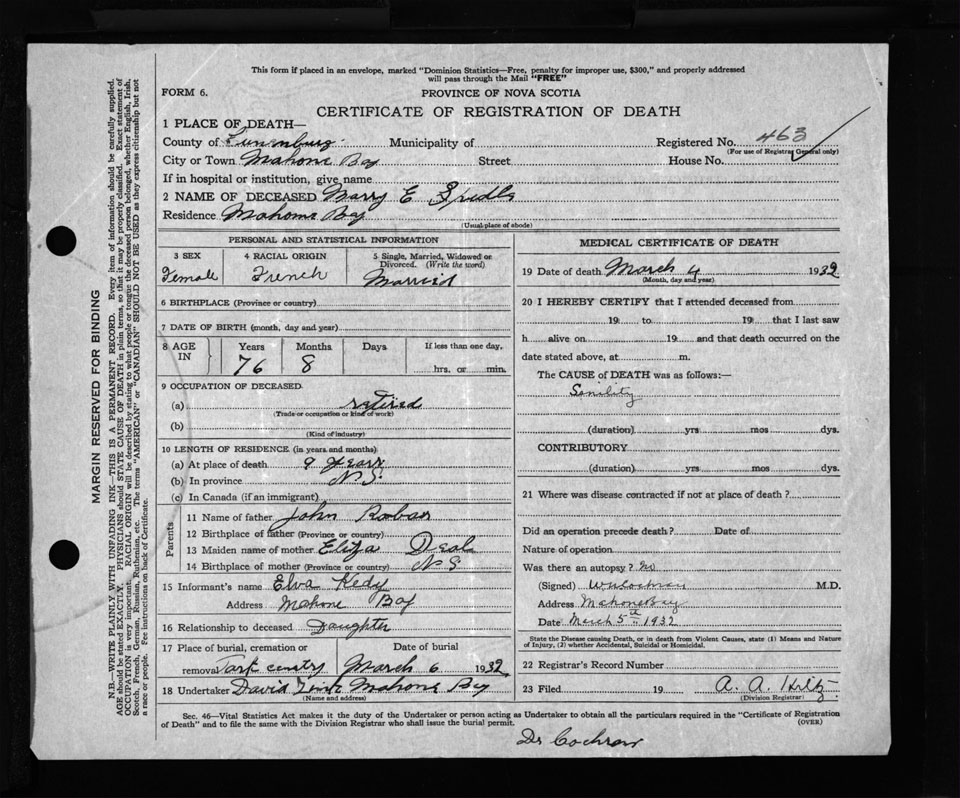 This form if placed in an envelope, marked "Dominion Statistics—Free, penalty for improper use, $300," and properly addressed
will pass through the Mail "FREE"
FORM 6. PROVINCE OF NOVA SCOTIA
CERTIFICATE OF REGISTRATION OF DEATH
1 PLACE OF DEATH—
County of Lunenburg Municipality of Registered No. 463
(For use of Registrar General only)
City or Town Mahone Bay Street House No.
If in hospital or institution, give name
2 NAME OF DECEASED Marry E
Residence Mahone Bay
(Usual place of abode)
PERSONAL AND STATISTICAL INFORMATION
3 SEX 4 RACIAL ORIGIN 5 Single, Married, Widowed or
Divorced. (Write the word)
Female French Married
6 BIRTHPLACE (Province or country)
7 DATE OF BIRTH (month, day and year)
8 AGE IN Years Months Days If less than one day,
76 8 hrs. or min.
9 OCCUPATION OF DECEASED
(a) retired
(Trade or occupation or kind of work)
(b)
(Kind of industry)
10 LENGTH OF RESIDENCE (in years and months)
(a) At place of death 9 years
(b) In province N S.
(c) In Canada (if an immigrant)
Parents
11 Name of father John Robar
12 Birthplace of father (Province or country)
13 Maiden name of mother Eliza Deal
14 Birthplace of mother (Province or country) N S
15 Informant's name Elva Kedy
Address Mahone Bay
16 Relationship to deceased Daughter
17 Place of burial, cremation or Date of burial
removal March 6 1932
18 Undertaker David Mahone Bay
(Name and address)
MEDICAL CERTIFICATE OF DEATH
19 Date of death March 4 1932
(Month, day and year)
20 I HEREBY CERTIFY that I attended deceased from
19 to 19 that I last saw
h alive on 19 and that death occurred on the
date stated above, at m.
The CAUSE of DEATH was as follows:—
Senility
(duration) yrs mos dys.
CONTRIBUTORY
(duration) yrs mos dys.
21 Where was disease contracted if not at place of death?
Did an operation precede death? Date of
Nature of operation
Was there an autopsy? no
(Signed) W Cochran M.D.
Address Mahone Bay
Date March 5th 1932
State the Disease causing Death, or in death from Violent Causes, state (1) Means and Nature
of Injury, (2) whether Accidental, Suicidal or Homicidal.
22 Registrar's Record Number
23 Filed 19 A. A. Hiltz
(Division Registrar)
Sec. 46—Vital Statistics Act makes it the duty of the Undertaker or person acting as Undertaker to obtain all the particulars required in the "Certificate of Registration
of Death" and to file the same with the Division Registrar who shall issue the burial permit. (OVER)
Dr Cochran
MARGIN RESERVED FOR BINDING
N.B.—WRITE PLAINLY WITH UNFADING INK—THIS IS A PERMANENT RECORD. Every item of information should be carefully supplied.
AGE should be stated EXACTLY. PHYSICIANS should STATE CAUSE OF DEATH in plain terms, so that it may be properly classified. Exact statement of
OCCUPATION is very important. RACIAL ORIGIN will be described by stating to what people or tongue the deceased person belonged, whether English, Irish,
Scotch, French, German, Russian, Ruthenian, etc. The terms "AMERICAN" or "CANADIAN" SHOULD NOT BE USED as they express citizenship but not
a race or people. See instructions on back of Certificate.